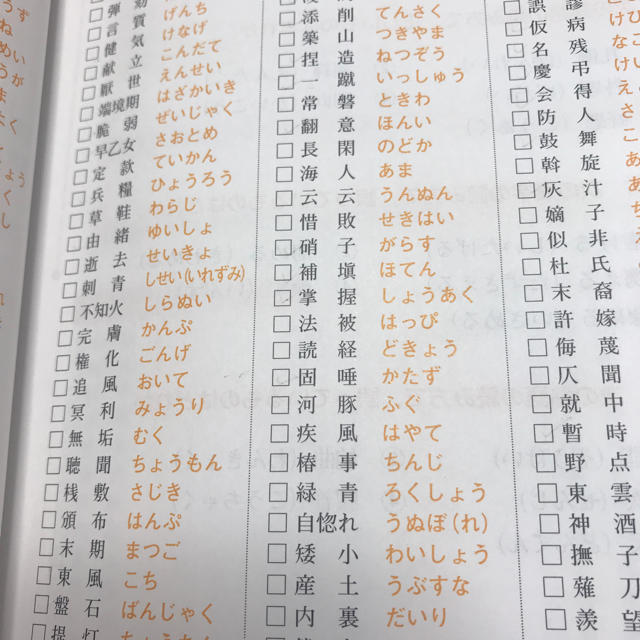 言質 げんち
健気 けなげ
献立 こんだて
厭世 えんせい
端境期 はざかいき
脆弱 ぜいじゃく
早乙女 さおとめ
定款 ていかん
兵糧 ひょうろう
草鞋 わらじ
由緒 ゆいしょ
逝去 せいきょ
刺青 しせい(いれずみ)
不知火 しらぬい
完膚 かんぷ
権化 ごんげ
追風 おいて
冥利 みょうり
無垢 むく
聴聞 ちょうもん
桟敷 さじき
頒布 はんぷ
末期 まつご
東風 こち
盤石 ばんじゃく
提灯
添削 てんさく
築山 つきやま
捏造 ねつぞう
一蹴 いっしゅう
常磐 ときわ
翻意 ほんい
長閑 のどか
海人 あま
云云 うんぬん
惜敗 せきはい
硝子 がらす
補塡 ほてん
掌握 しょうあく
法被 はっぴ
読経 どきょう
固唾 かたず
河豚 ふぐ
疾風 はやて
椿事 ちんじ
緑青 ろくしょう
自惚れ うぬぼ(れ)
矮小 わいしょう
産土 うぶすな
内裏 だいり
誤謬
仮病
名残
慶弔
会得
防人
鼓舞
斡旋
灰汁
嫡子
似非
杜氏
末裔
許嫁
侮蔑
仄聞
就中
暫時
野点
東雲
神酒
撫子
薙刀
羨望